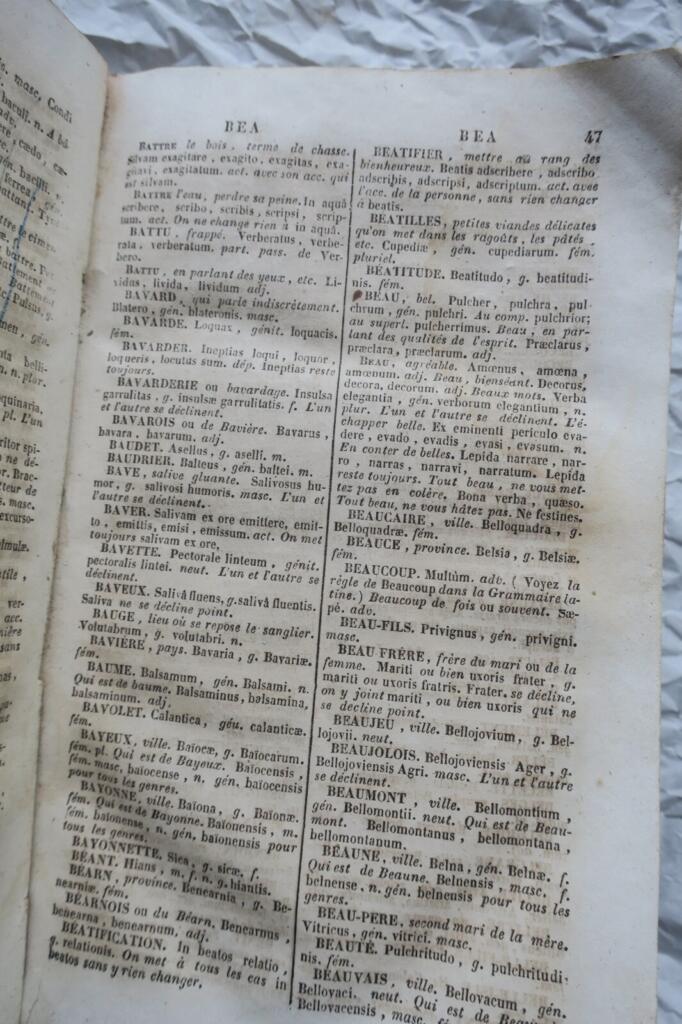 BEA
BATTRE le bois, terme de chasse.
Silvam exagitare, exagito, exagitas, exa-
gitavi, exagitatum. act. avec son acc. qui
est silvam.
BATTRE l'eau, perdre sa peine. In aquâ
scribere, scribo, scribis, scripsi, scrip-
tum. act. On ne change rien à in aquâ.
BATTU, frappé. Verberatus, verbe-
rata, verberatum. part. pass. de Ver-
bero.
BATTU, en parlant des yeux, etc. Li-
vidus, livida, lividum adj.
BAVARD, qui parle indiscrètement.
Blatero, gén. blateronis. masc.
BAVARDE. Loquax, génit. loquacis.
fém.
BAVARDER. Ineptias loqui, loquor,
loqueris, locutus sum. dép. Ineptias reste
toujours.
BAVARDERIE ou bavardage. Insulsa
garrulitas, g. insulsæ garrulitatis. f. L'un
et l'autre se déclinent.
BAVAROIS ou de Bavière. Bavarus,
bavara, bavarum. adj.
BAUDET. Asellus, g. aselli. m.
BAUDRIER. Balteus, gén. baltei. m.
BAVE, salive gluante. Salivosus hu-
mor, g. salivosi humoris. masc. L'un et
l'autre se déclinent.
BAVER. Salivam ex ore emittere, emit-
to, emittis, emisi, emissum. act. On met
toujours salivam ex ore,
BAVETTE. Pectorale linteum, génit.
pectoralis lintei. neut. L'un et l'autre se
déclinent.
BAVEUX. Salivâ fluens, g. salivâ fluentis.
Saliva ne se décline point.
BAUGE, lieu où se repose le sanglier.
Volutabrum, g. volutabri. n.
BAVIÈRE, pays. Bavaria, g. Bavariæ.
fém.
BAUME. Balsamum, gén. Balsami. n.
Qui est de baume. Balsaminus, balsamina,
balsaminum. adj.
BAVOLET. Calantica, gén. calanticæ.
fém.
BAYEUX, ville. Baïocæ, g. Baïocarum.
fém. pl. Qui est de Bayeux. Baïocensis,
fém. masc. baïocense, n. gén. baïocensis
pour tous les genres.
BAYONNE, ville. Baïona, g. Baïonæ.
fém. Qui est de Bayonne. Baïonensis, m.
fém. baïonense, n. gén. baïonensis pour
tous les genres.
BAYONNETTE. Sica, g. sicæ. f.
BÉANT. Hians, m. f. n. g. hiantis.
BÉARN, province. Benearnia, g. Be-
nearniæ. fém.
BÉARNOIS ou du Béarn. Benearnus,
benearna, benearnum, adj.
BÉATIFICATION. In beatos relatio,
g. relationis. On met à tous les cas in
beatos sans y rien changer.
BEA 47
BÉATIFIER, mettre au rang des
bienheureux. Beatis adscribere, adscribo
adscribis, adscripsi, adscriptum. act. avec
l'acc. de la personne, sans rien changer
à beatis.
BEATILLES, petites viandes délicates
qu'on met dans les ragoûts, les pâtés,
etc. Cupediæ, gén. cupediarum. fém.
pluriel.
BÉATITUDE. Beatitudo, g. beatitudi-
nis. fém.
BEAU, bel. Pulcher, pulchra, pul
chrum, gén. pulchri. Au comp. pulchrior;
au superl. pulcherrimus. Beau, en par-
lant des qualités de l'esprit. Præclarus,
præclara, præclarum. adj.
BEAU, agréable. Amœnus, amœna,
amœnum. adj. Beau, bienséant. Decorus,
decora, decorum. adj. Beaux mots. Verba
elegantia, gén. verborum elegantium, n.
plur. L'un et l'autre se déclinent. L'é-
chapper belle. Ex eminenti periculo eva-
dere, evado, evadis, evasi, evasum. n.
En conter de belles. Lepida narrare, nar-
ro, narras, narravi, narratum. Lepida
reste toujours. Tout beau, ne vous met-
tez pas en colère. Bona verba, quæso.
Tout beau, ne vous hâtez pas. Ne festines.
BEAUCAIRE, ville. Belloquadra, g.
Belloquadræ. fém.
BEAUCE, province. Belsia, g. Belsiæ.
fém.
BEAUCOUP. Multùm. adv. (Voyez la
règle de Beaucoup dans la Grammaire la-
tine.) Beaucoup de fois ou souvent. Sæ-
pè. adv.
BEAU-FILS. Privignus, gén. privigni.
masc.
BEAU FRÈRE, frère du mari ou de la
femme. Mariti ou bien uxoris frater, g.
mariti ou uxoris fratris. Frater. se décline,
on y joint mariti, ou bien uxoris qui ne
se décline point.
BEAUJEU, ville. Bellojovium, g. Bel-
lojovii. neut.
BEAUJOLOIS. Bellojoviensis Ager, g.
Bellojoviensis Agri. masc. L'un et l'autre
se déclinent.
BEAUMONT, ville. Bellomontium,
gén. Bellomontii. neut. Qui est de Beau-
mont. Bellomontanus, bellomontana,
bellomontanum.
BEAUNE, ville. Belna, gén. Belnæ. f.
Qui est de Beaune. Belnensis, masc. f.
belnense, n. gén. belnensis pour tous les
genres.
BEAU-PERE, second mari de la mère.
Vitricus, gén. vitrici. masc.
BEAUTÉ. Pulchritudo, g. pulchritudi-
nis. fém.
BEAUVAIS, ville. Bellovacum, gén.
Bellovaci. neut. Qui est de
Bellovacensis, masc.